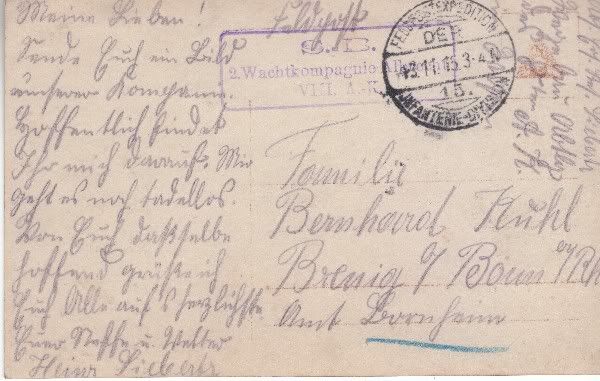 Meine Lieben!
Sende Euch ein Bild
unserer Kompanie.
Hoffentlich findet
Ihr mich darauf. Mir
geht es noch tadellos.
Von Euch dasselbe
hoffend grüßt
Euch Alle auf's herzlichste
Euer Neffe u. Vetter
Heinr.
Feldpost
S. B.
2. Wachtkompagnie
VIII. A.-K.
FELDPOSTEXPEDITION
DER
13.11.15.3-4.N
15.
INFANTERIE-DIVISION
Familie
Bernhard Kuhl
Brenig b/ Bonn a/Rh
Amt Bornheim